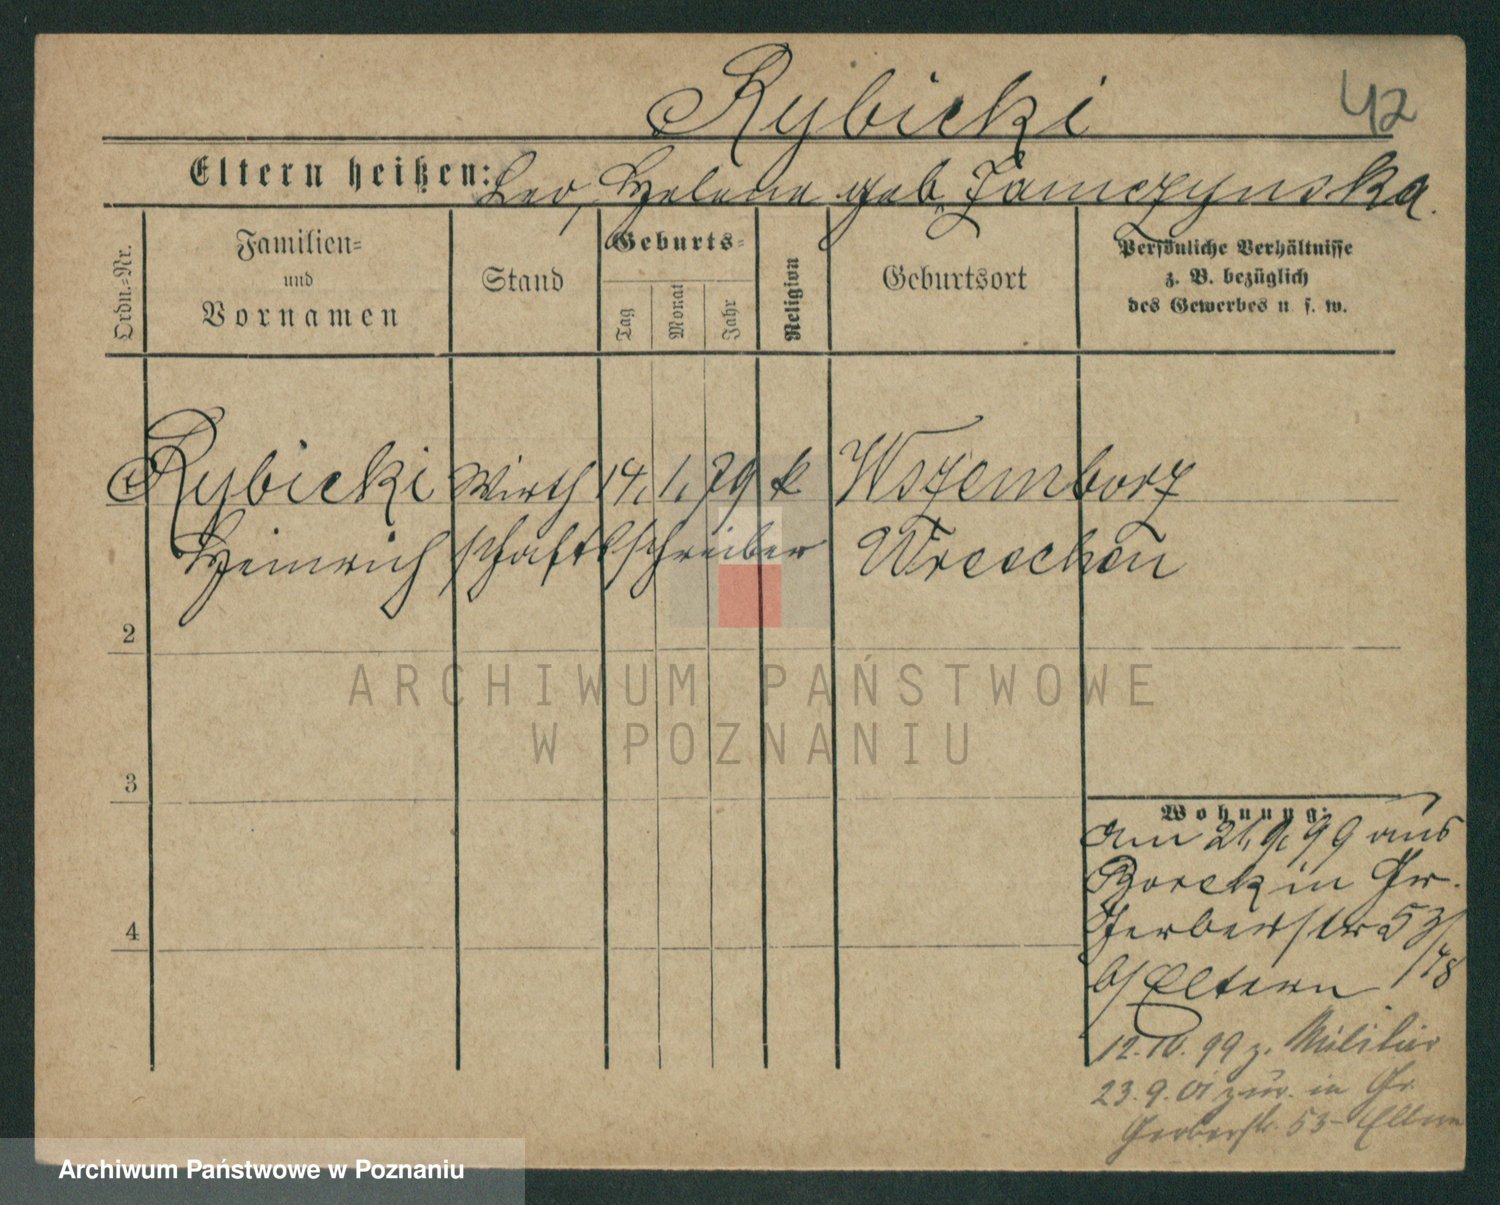 Rybicki
42
Eltern heißen: Leo, Helene geb. Jamczynska.
Ordn.-Nr.
Familien-
und
Vornamen
Stand
Geburts-
Tag
Monat
Jahr
Religion
Geburtsort
Persönliche Verhältnisse
z. B. bezüglich
des Gewerbes u. s. w.
Rybicki Wirth 14. 1. 79 k Wszemborz
Heinrich schaftsschreiber Wreschen
2
3
4
Wohnung:
Am 21. 9. 99 aus
Borek in Gr.
Gerberstr 53/
b/ Eltern /78
12.10.99 z. Militär
23.9.01 zur. in Gr.
Gerberstr. 53 Eltern
ARCHIWUM PAŃSTWOWE
W POZNANIU
Archiwum Państwowe w Poznaniu